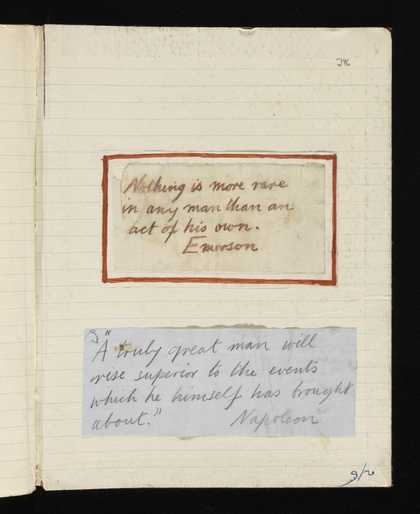 Nothing is more rare
in any man than an
act of his own.
Emerson
"A truly great man will
rise superior to the events
which he himself has brought
about."
Napoleon